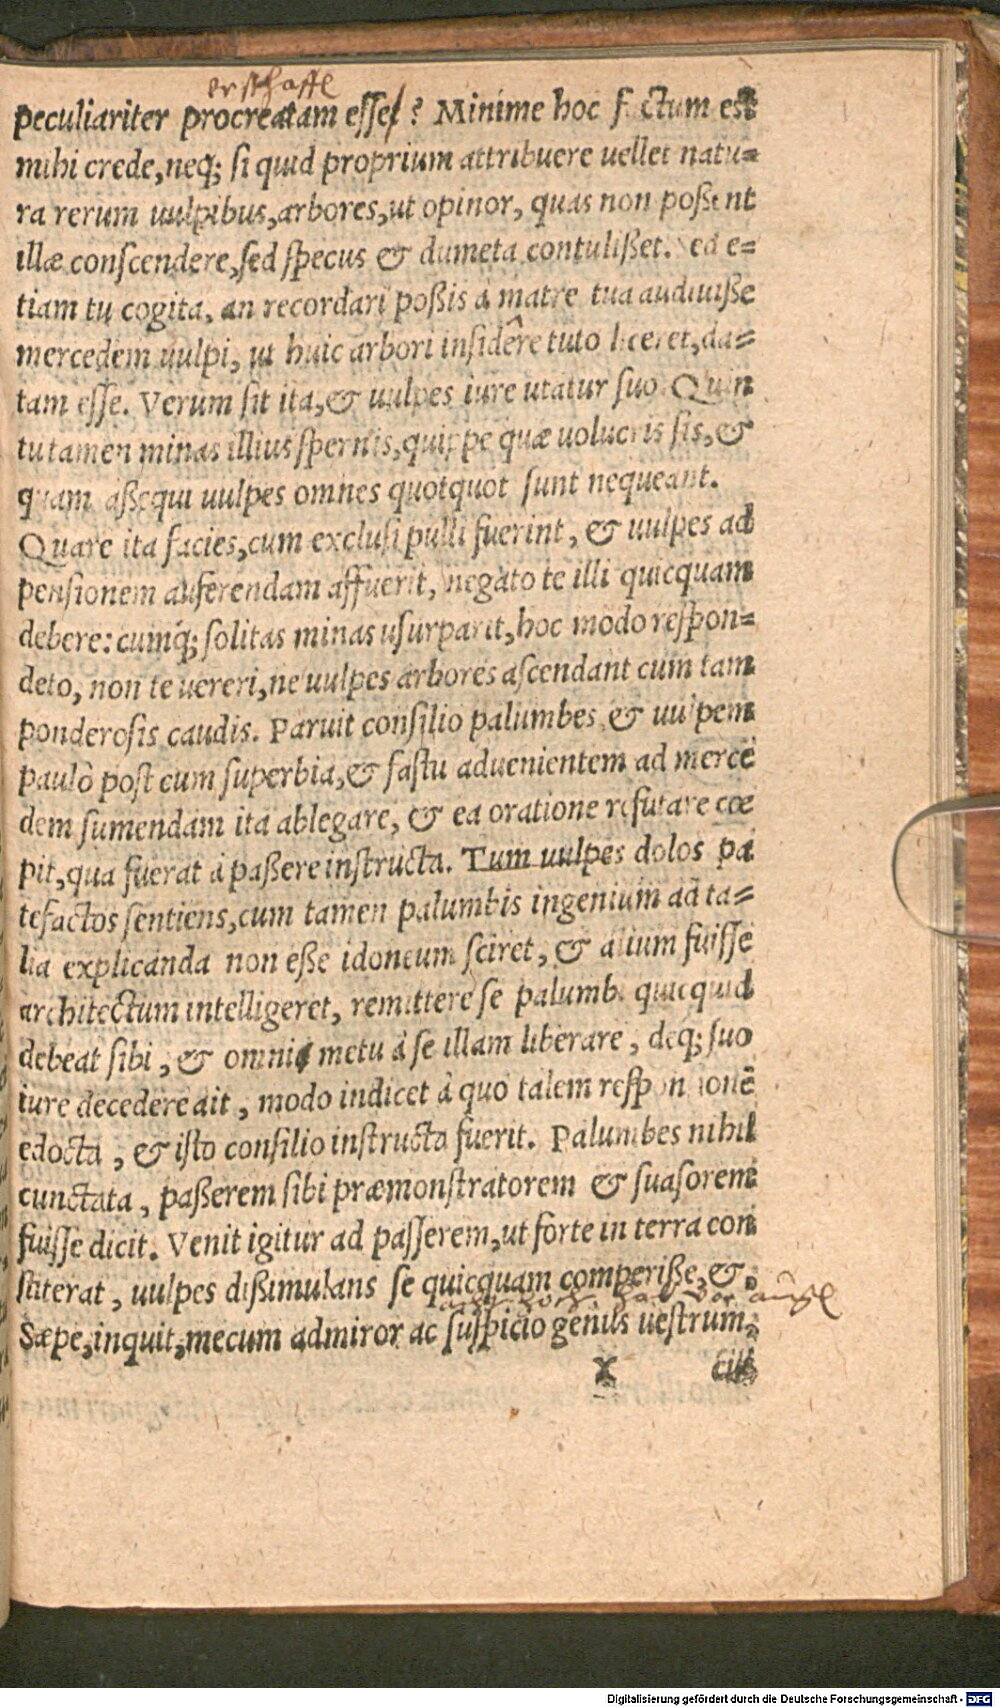 erschaffe
peculiariter procreatam esse? Minime hoc f ctum est
mihi crede, neq; si quid proprium attribuere uellet natu=
ra rerum uulpibus, arbores, ut opinor, quas non poßent
illæ conscendere, sed specus & dumeta contulißet. ed e=
tiam tu cogita, an recordari poßis à matre tua audiuiße
mercedem uulpi, ut huic arbori insidêre tuto liceret, da=
tam esse. Verum sit ita, & uulpes iure utatur suo. Quin
tu tamen minas illius spernis, quippe quæ uolucris sis, &
quam aßequi uulpes omnes quotquot sunt nequeant.
Quare ita facies, cum exclusi pulli fuerint, & uulpes ad
pensionem auferendam affuerit, negato te illi quicquam
debere: cumq́; solitas minas usurparit, hoc modo respon=
deto, non te uereri, ne uulpes arbores ascendant cum tam
ponderosis caudis. Paruit consilio palumbes & uulpem
paulò post cum superbia, & fastu aduenientem ad mercē
dem sumendam ita ablegare, & ea oratione refutare cœ
pit, qua fuerat à paßere instructa. Tum uulpes dolos pa
tefactos sentiens, cum tamen palumbis ingenium ad ta=
lia explicanda non eße idoneum sciret, & alium fuisse
architectum intelligeret, remittere se palumbi quicquid
debeat sibi, & omni metu à se illam liberare, deq; suo
iure decedere ait, modo indicet à quo talem respon ionē
edocta, & isto consilio instructa fuerit. Palumbes nihil
cunctata, paßerem sibi præmonstratorem & suasorem
fuisse dicit. Venit igitur ad passerem, ut forte in terra con
stiterat, uulpes dißimulans se quicquam comperiße, &
Sæpe, inquit, mecum admiror ac suspicio genus uestrum,
X cui
Digitalisierung gefördert durch die Deutsche Forschungsgemeinschaft - DFG